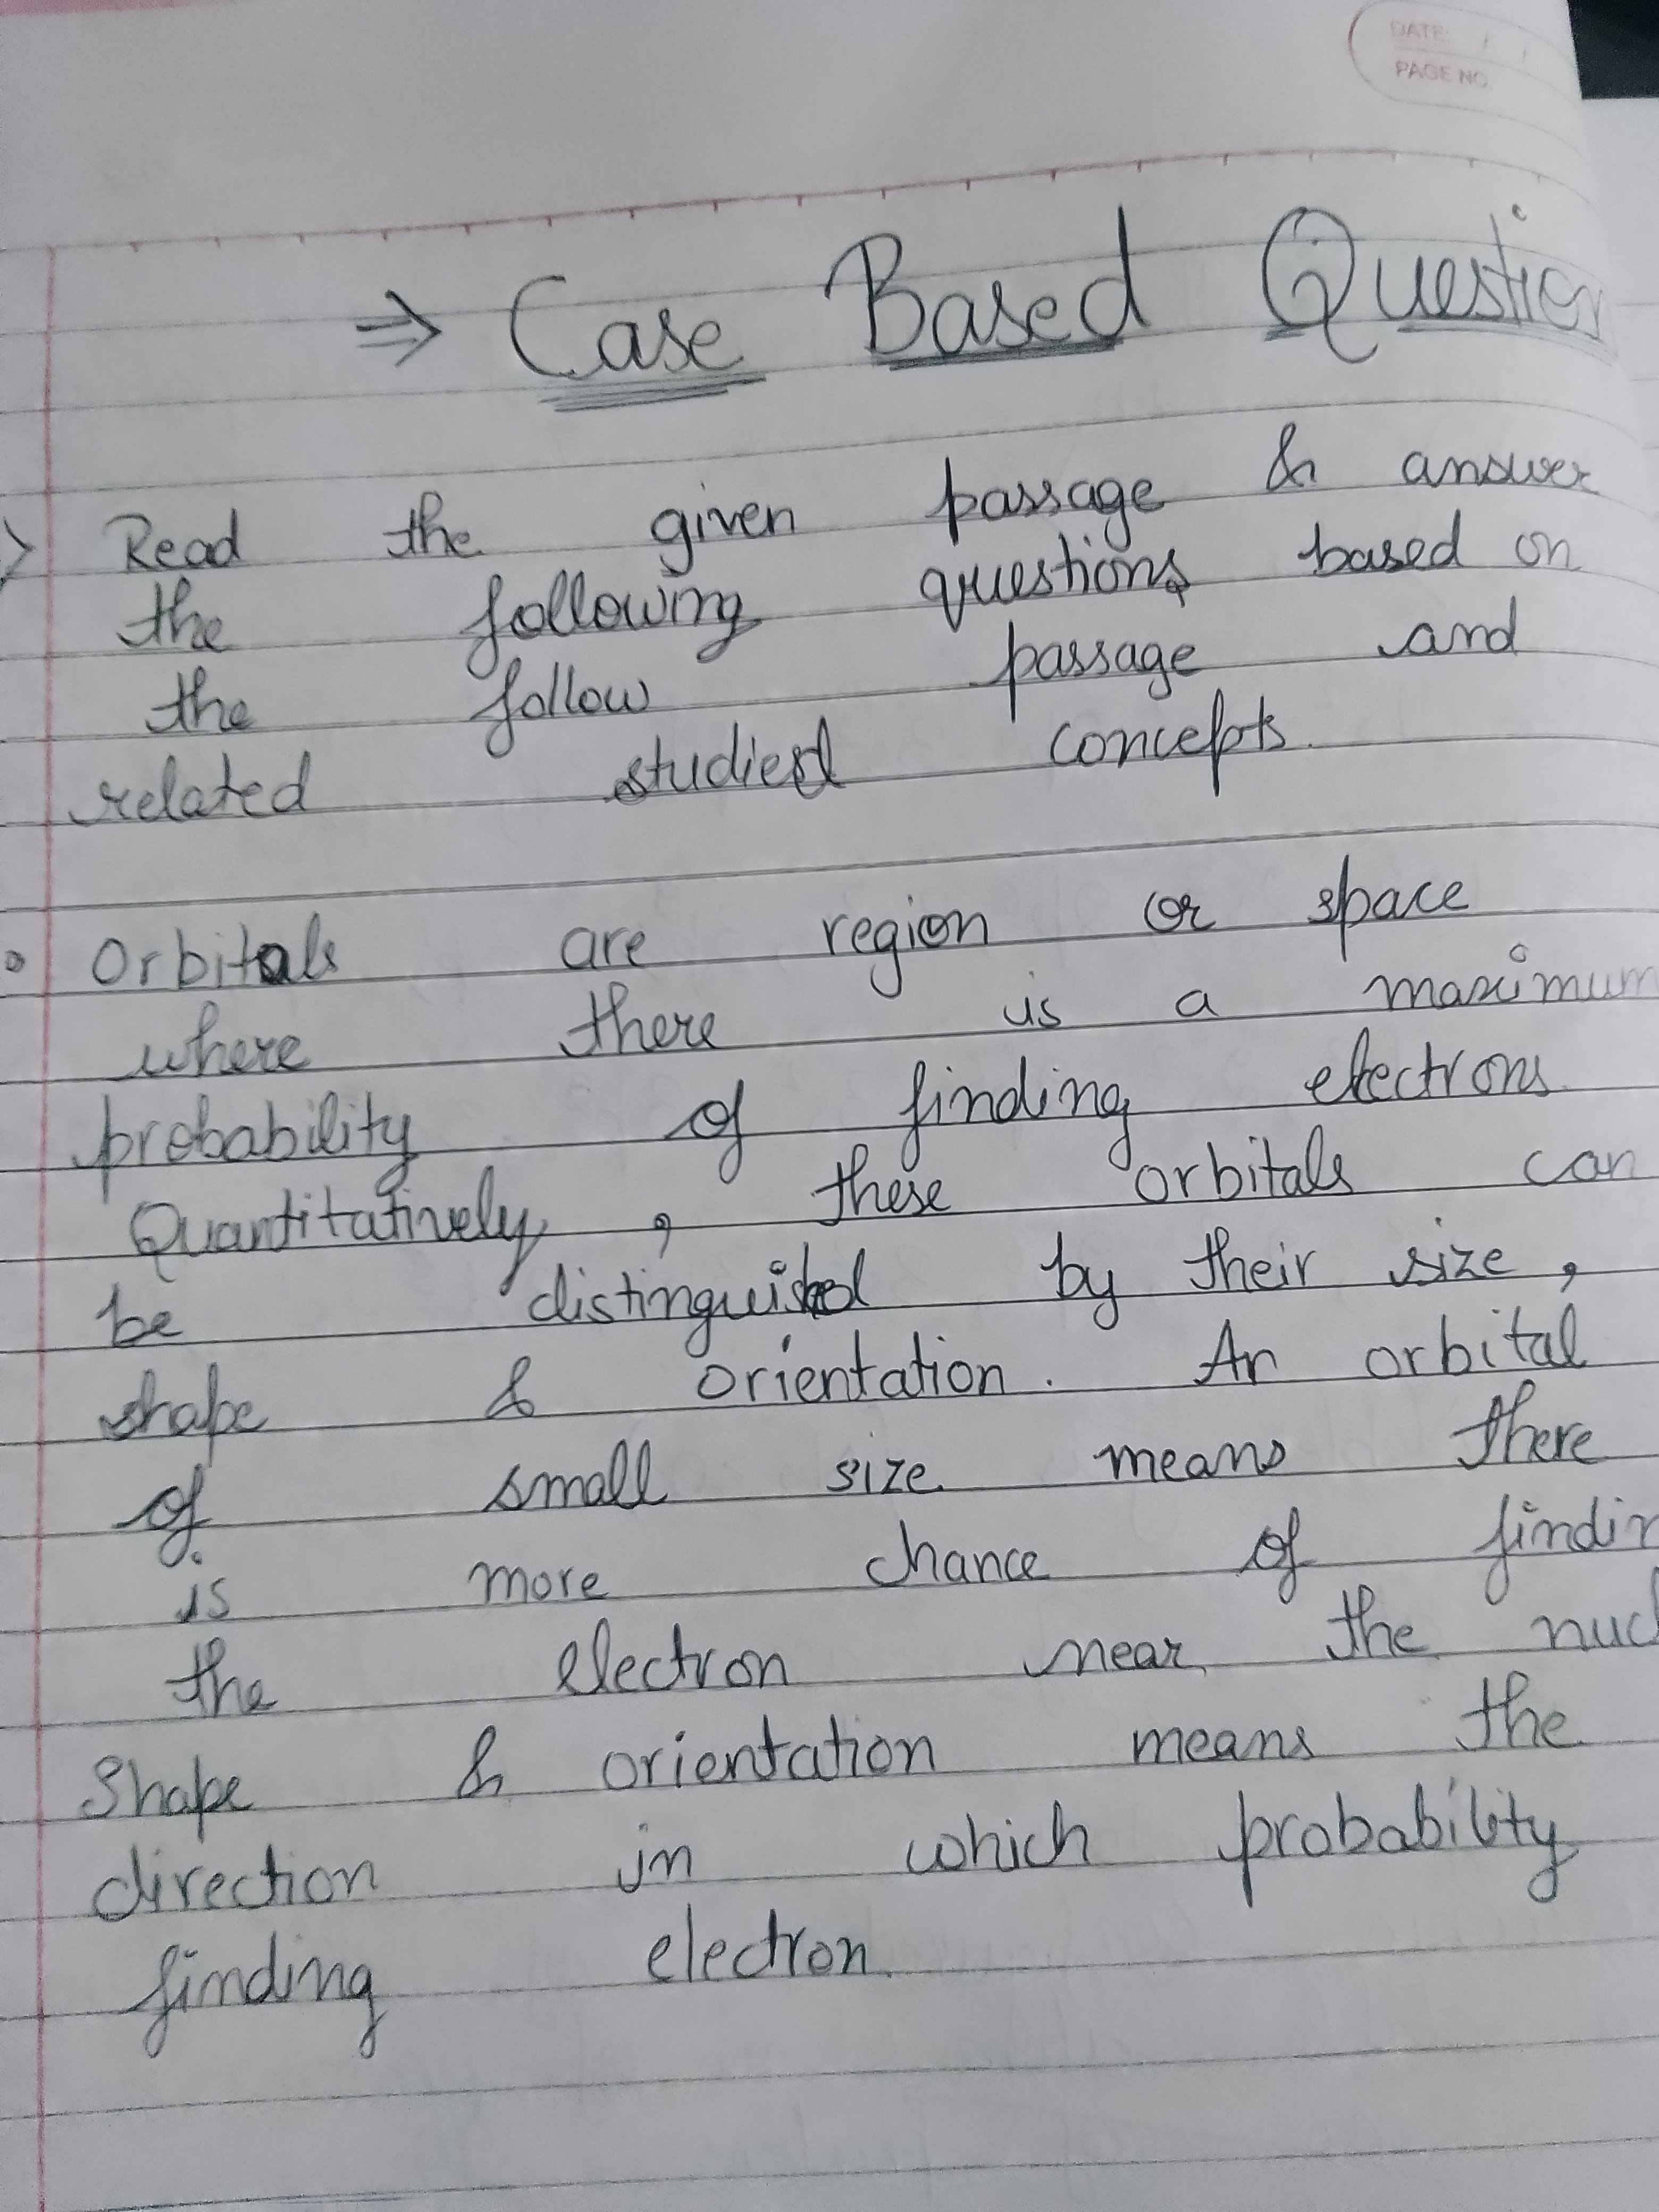 DATE: / /
PAGE NO.
⇒ Case Based Question
> Read the given passage & answer
the following questions based on
the follow passage and
related studied concepts.
Orbitals are region or space
where there is a maximum
probability of finding electrons.
Quantitatively, these orbitals can
be distinguished by their size,
shape & orientation. An orbital
of small size means there
is more chance of findin
the electron near the nucl
Shape & orientation means the
direction in which probability
finding electron.